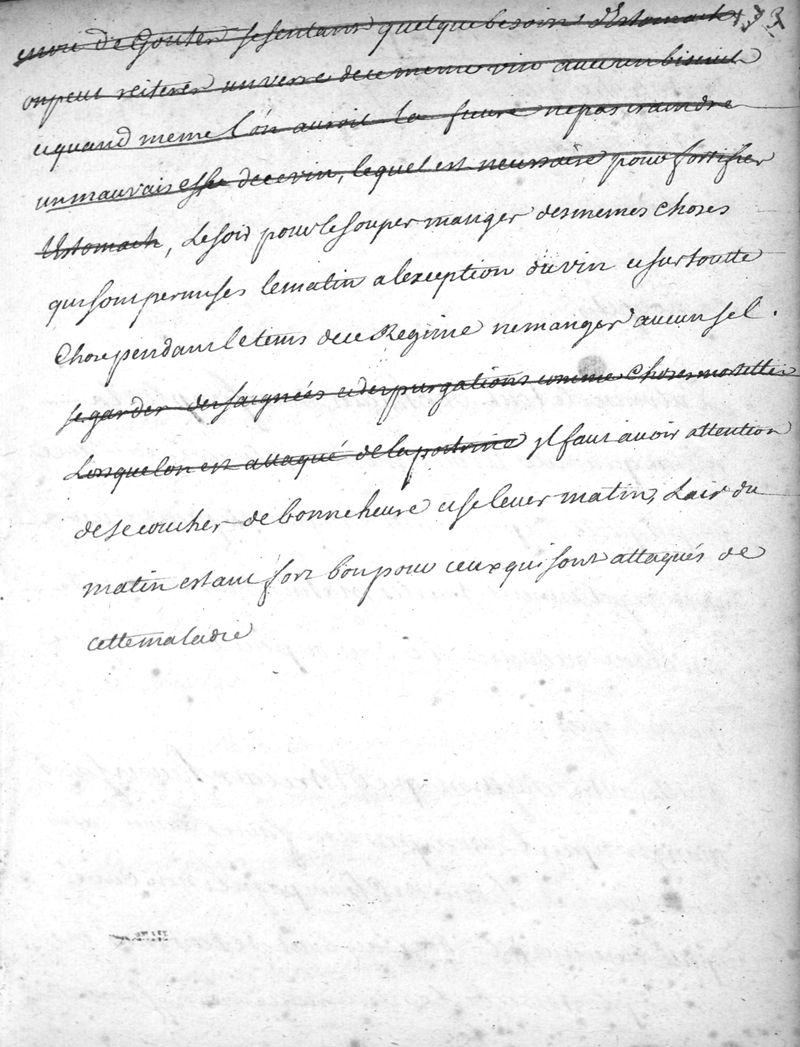 de Gouter se sentant quelque besoin d'Estomach
on peut reiterer un verre de ce meme vin avec un biscuit
et quand meme l'on auroit la fievre ne pas craindre
un mauvais effet de ce vin, lequel est necessaire pour fortifier
l'Estomach, Le soir pour le souper manger des memes choses
qui sont permises le matin a lexception du vin et sur toutte
Chose pendant le tems de ce Regime ne manger aucun sel.
se garder des saignées et des purgations comme choses mortelles
Lorsque lon est attaqué de la poitrine il faut avoir attention
de se coucher de bonne heure et se lever matin, Lair du
matin estant fort bon pour ceux qui sont attaqués de
cette maladie